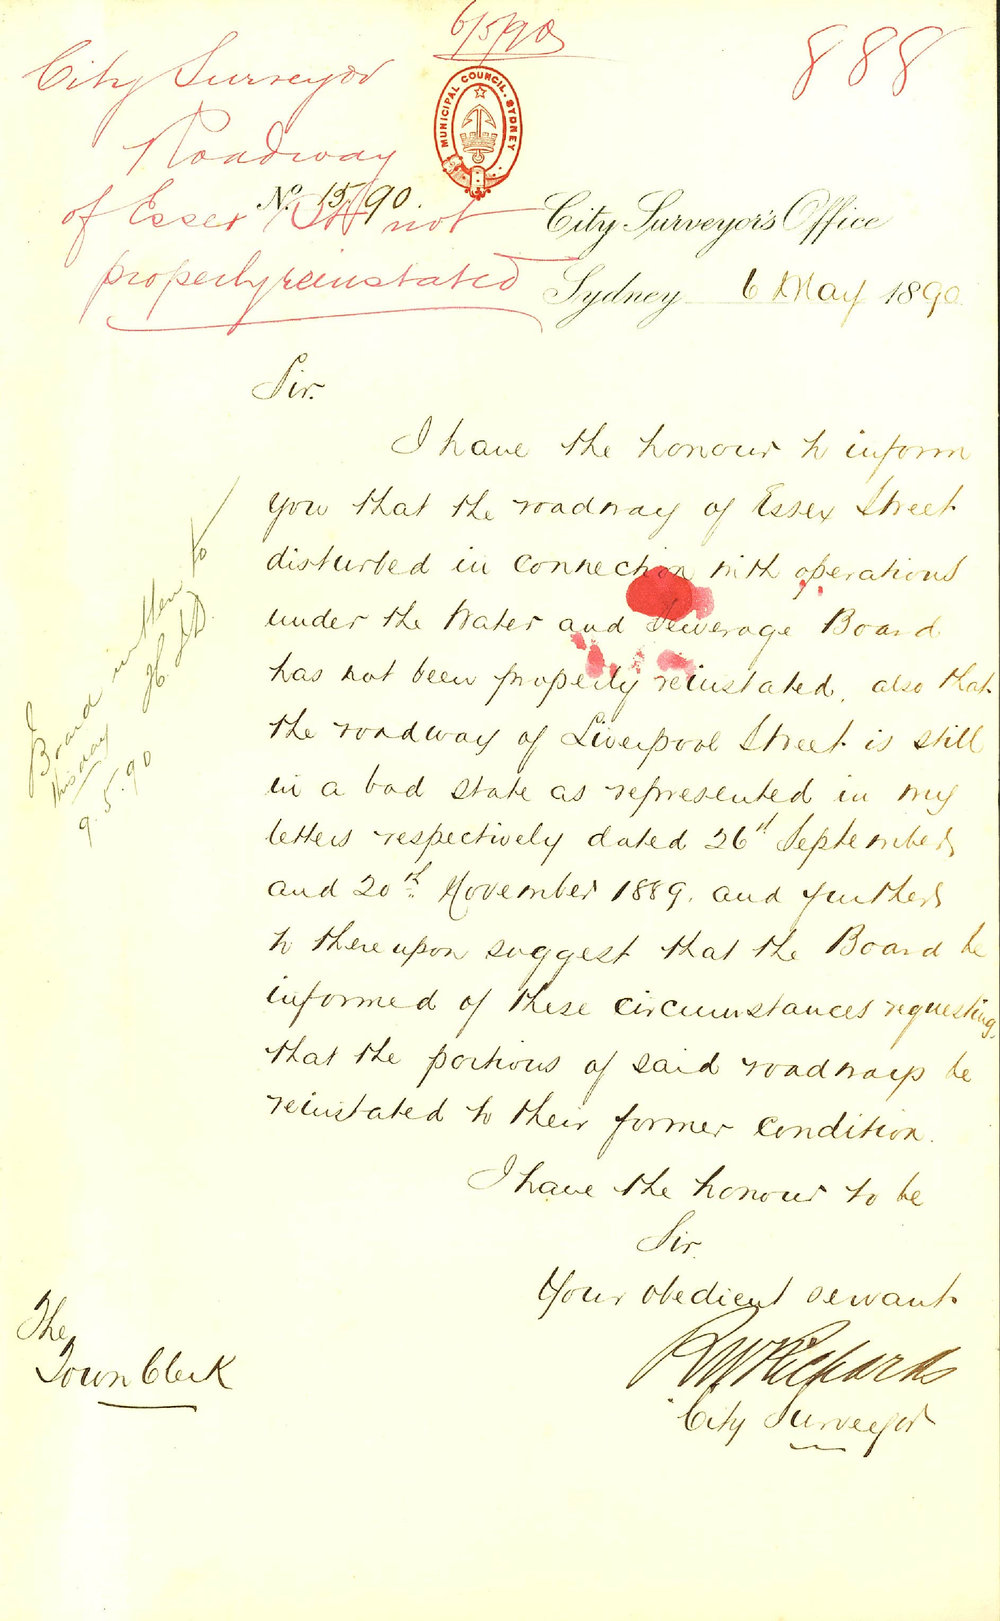 6/5/90
888
City Surveyor
Roadway
of Essex St not
properly reinstated
MUNICIPAL COUNCIL. SYDNEY
No. 15/90.
City Surveyor's Office
Sydney 6 May 1890
Sir.
I have the honour to inform
you that the roadway of Essex Street
disturbed in connection with operations
under the Water and Sewerage Board
has not been properly reinstated, also that
the roadway of Liverpool Street is still
in a bad state as represented in my
letters respectively dated 26th September
and 20th November 1889. and further
to thereupon suggest that the Board be
informed of these circumstances requesting
that the portions of said roadways be
reinstated to their former condition.
I have the honour to be
Sir
Your obedient servant
R W Richards
City Surveyor
The
Town Clerk
Board written to
this day
9.5.90